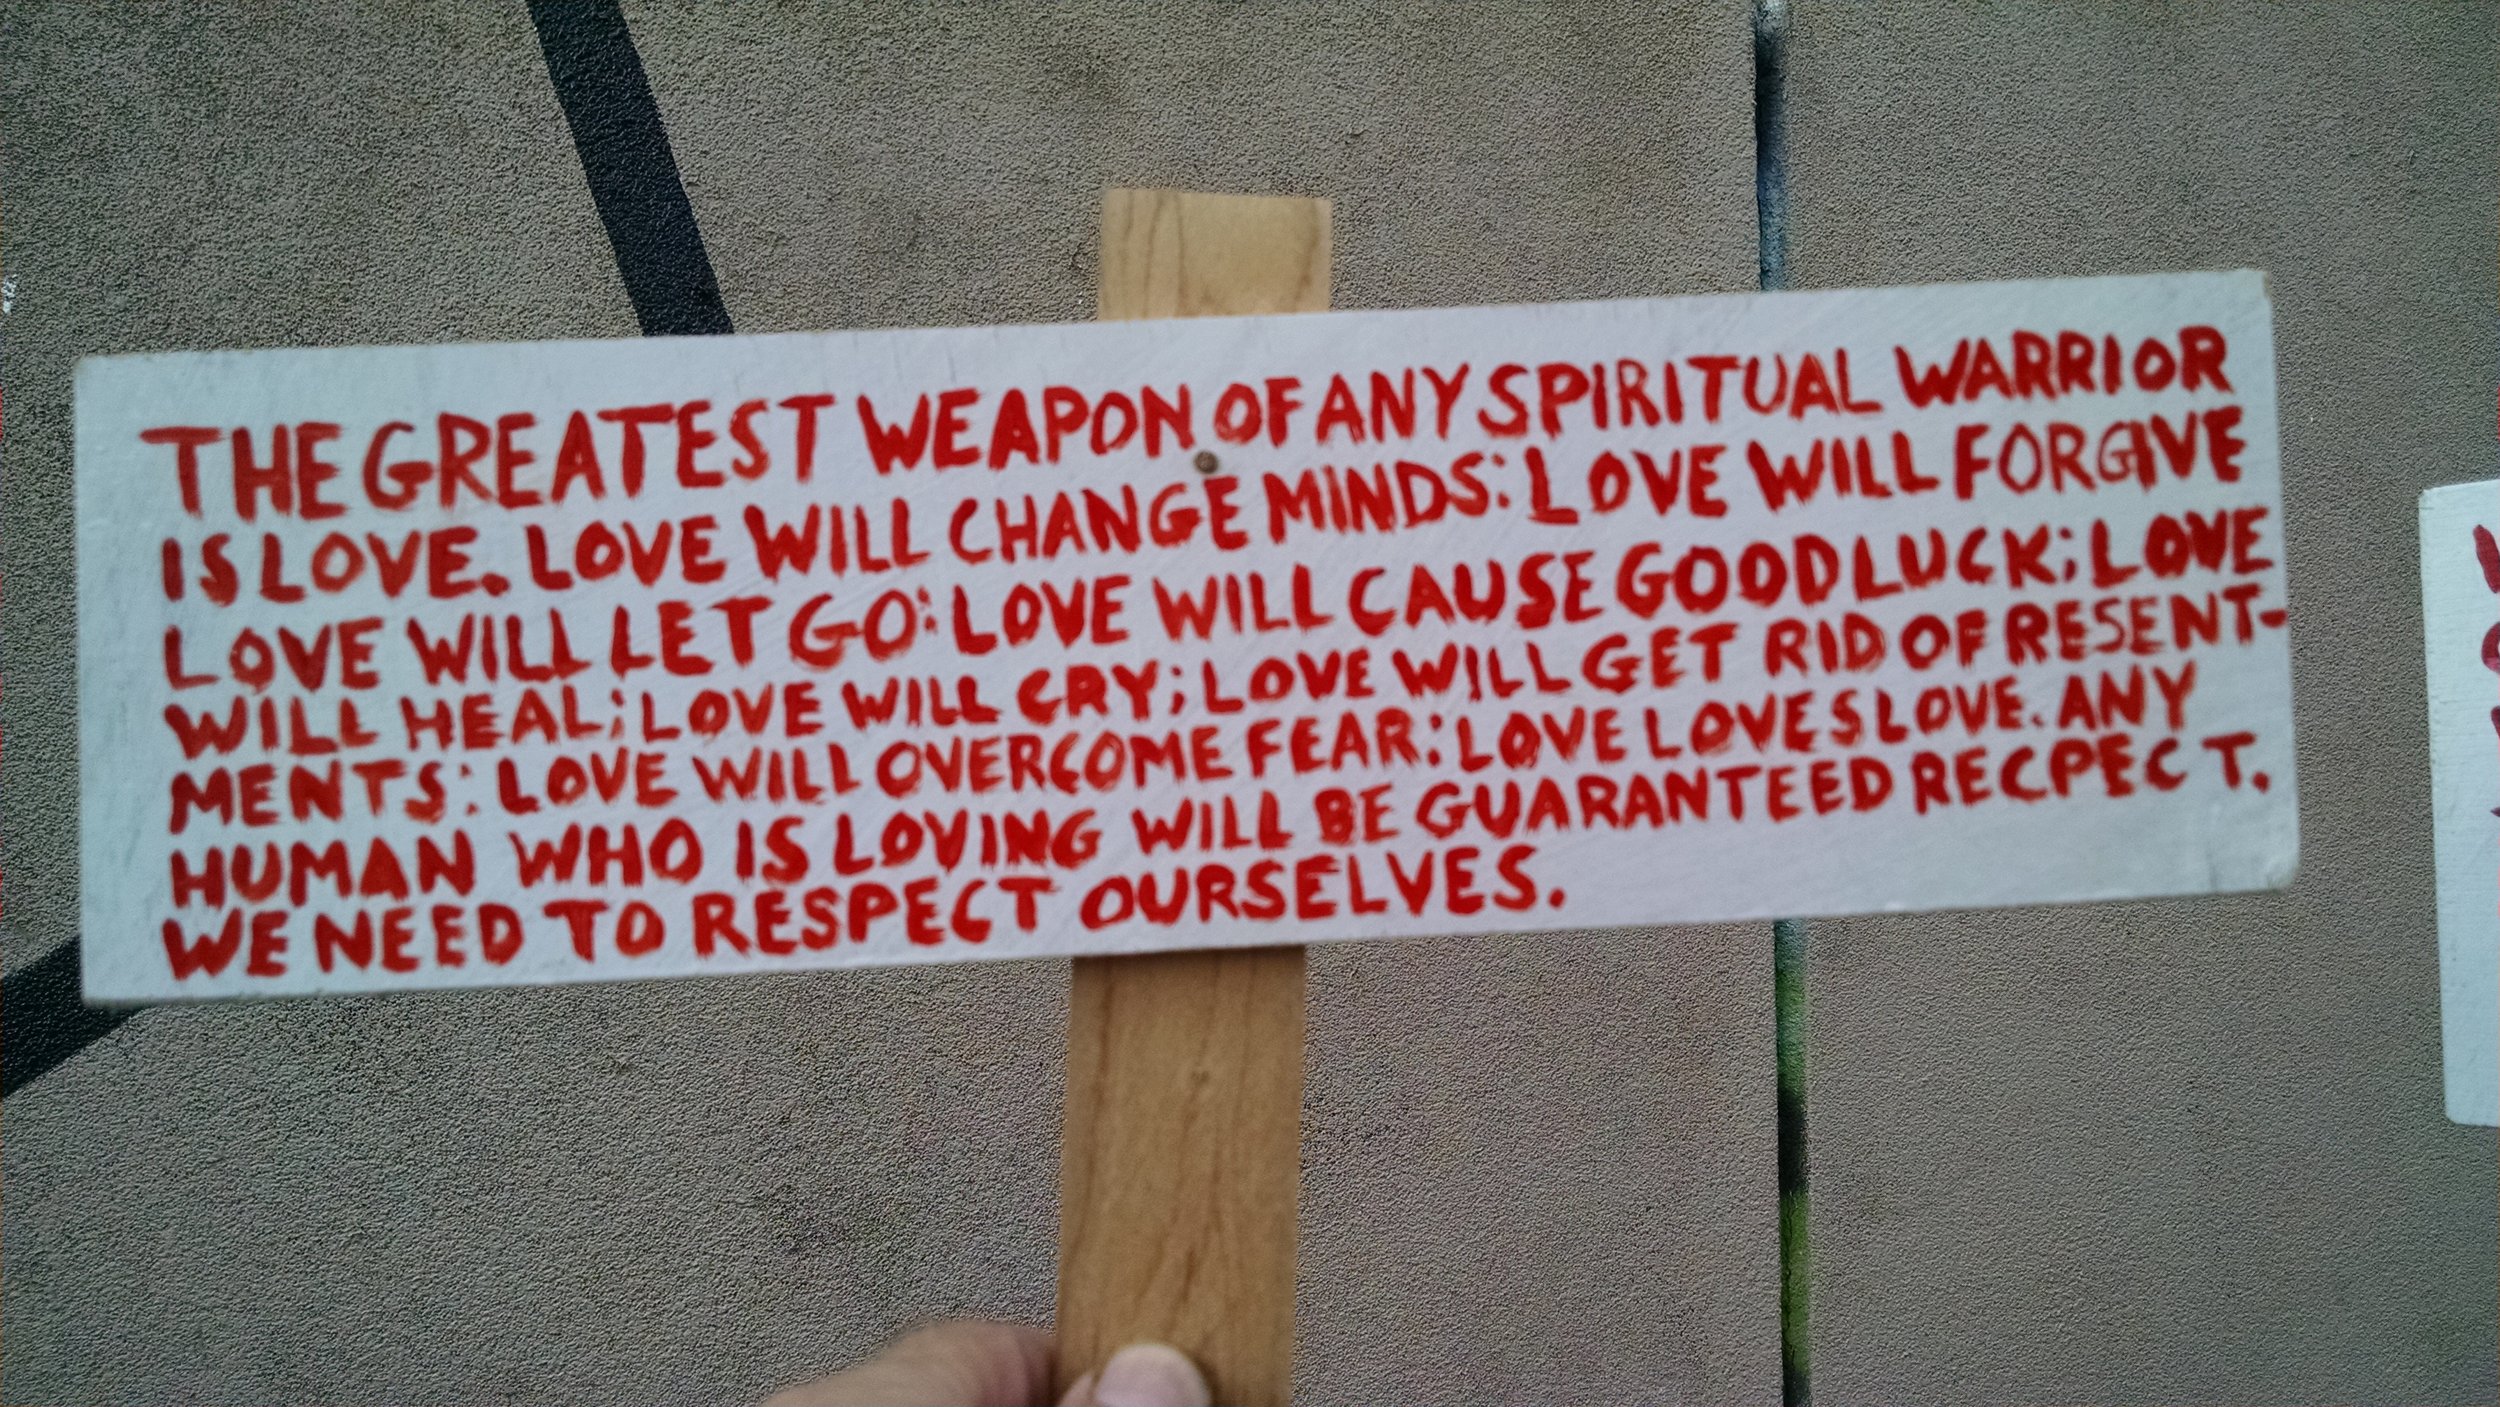 THE GREATEST WEAPON OF ANY SPIRITUAL WARRIOR
IS LOVE. LOVE WILL CHANGE MINDS: LOVE WILL FORGIVE
LOVE WILL LET GO: LOVE WILL CAUSE GOOD LUCK; LOVE
WILL HEAL; LOVE WILL CRY; LOVE WILL GET RID OF RESENT-
MENTS: LOVE WILL OVERCOME FEAR: LOVE LOVES LOVE. ANY
HUMAN WHO IS LOVING WILL BE GUARANTEED RECPECT.
WE NEED TO RESPECT OURSELVES.